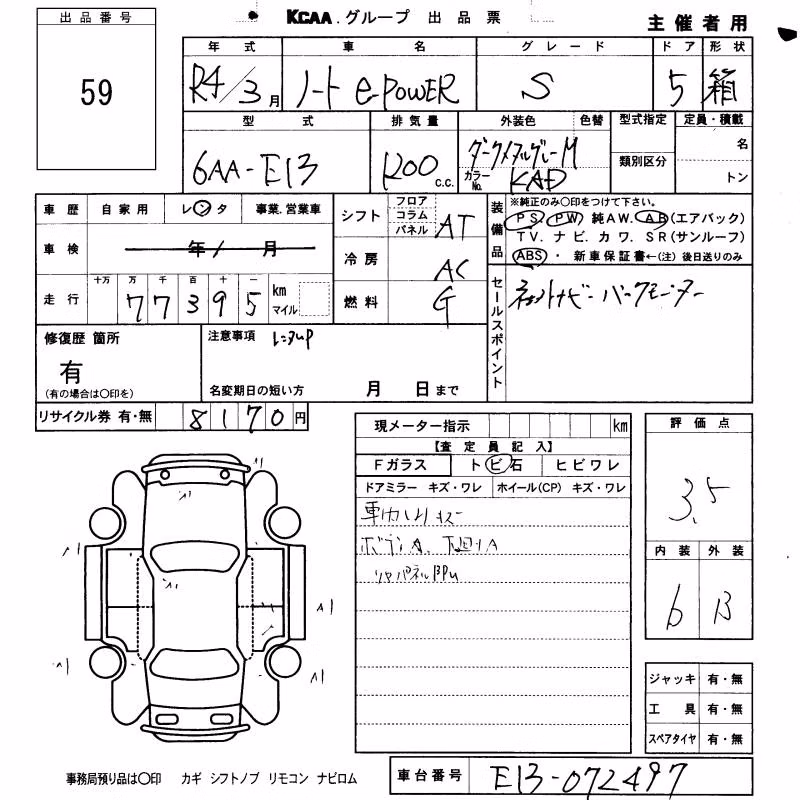 KCAA.グループ 出品票
主催者用
出品番号
59
年式 車名 グレード ドア 形状
R4/3月 ノート e-POWER S 5 箱
型式 排気量 外装色 色替 型式指定 定員・積載
6AA-E13 1200 c.c. ダークメタルグレーM 名
カラーNo. KAD 類別区分 トン
車歴 自家用 レンタ 事業.営業車
車検 年 月
走行 十万 万 千 百 十 一
77395 km マイル
シフト フロア コラム パネル AT
冷房 AC
燃料 G
装備品 ※純正のみ○印をつけて下さい。
PS PW 純AW. AB(エアバック)
TV. ナビ. カワ. SR(サンルーフ)
ABS ・ 新車保証書←(注) 後日送りのみ
セールスポイント
ネットナビ バックモニター
修復歴 箇所
有
(有の場合は○印を)
注意事項 レンタUP
名変期日の短い方 月 日まで
リサイクル券 有・無 8170円
現メーター指示 km
【査定員記入】
Fガラス トビ石 ヒビワレ
ドアミラー キズ・ワレ ホイール(CP) キズ・ワレ
車内ハリ キズ
ボディA、下廻りA
リヤパネルBPU
評価点
3.5
内装 外装
6 B
ジャッキ 有・無
工具 有・無
スペアタイヤ 有・無
A1
A1
A1
A1
事務局預り品は○印 カギ シフトノブ リモコン ナビロム
車台番号 E13-072497